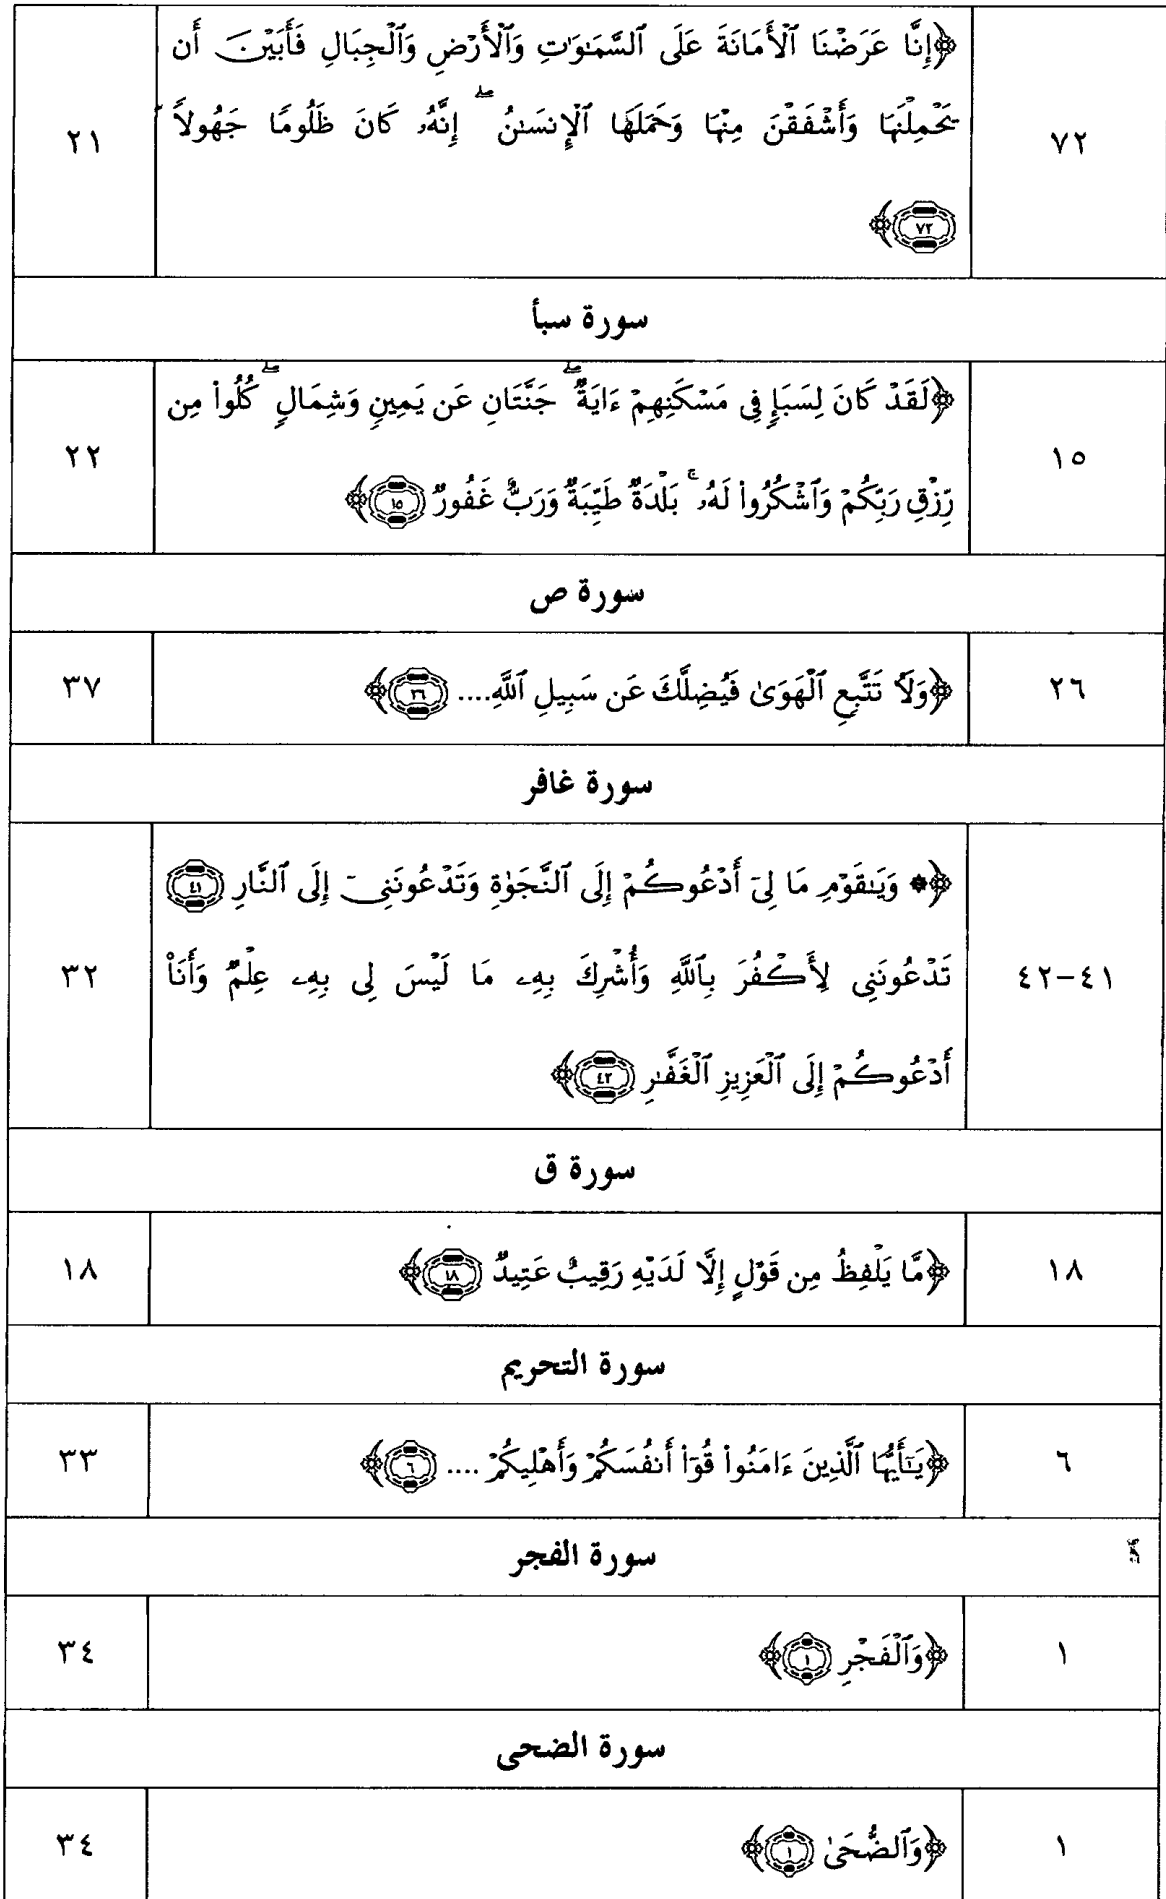 ٧٢ ﴿إِنَّا عَرَضْنَا ٱلْأَمَانَةَ عَلَى ٱلسَّمَـٰوَٰتِ وَٱلْأَرْضِ وَٱلْجِبَالِ فَأَبَيْنَ أَن ٢١
تَحْمِلْنَهَا وَأَشْفَقْنَ مِنْهَا وَحَمَلَهَا ٱلْإِنسَـٰنُ ۖ إِنَّهُۥ كَانَ ظَلُومًا جَهُولًا
٧٢﴾
سورة سبأ
١٥ ﴿لَقَدْ كَانَ لِسَبَإٍ فِى مَسْكَنِهِمْ ءَايَةٌ ۖ جَنَّتَانِ عَن يَمِينٍ وَشِمَالٍ ۖ كُلُوا۟ مِن ٢٢
رِّزْقِ رَبِّكُمْ وَٱشْكُرُوا۟ لَهُۥ ۚ بَلْدَةٌ طَيِّبَةٌ وَرَبٌّ غَفُورٌ ١٥﴾
سورة ص
٢٦ ﴿وَلَا تَتَّبِعِ ٱلْهَوَىٰ فَيُضِلَّكَ عَن سَبِيلِ ٱللَّهِ.... ٢٦﴾ ٣٧
سورة غافر
٤١-٤٢ ﴿۞ وَيَـٰقَوْمِ مَا لِىٓ أَدْعُوكُمْ إِلَى ٱلنَّجَوٰةِ وَتَدْعُونَنِىٓ إِلَى ٱلنَّارِ ٤١ ٣٢
تَدْعُونَنِى لِأَكْفُرَ بِٱللَّهِ وَأُشْرِكَ بِهِۦ مَا لَيْسَ لِى بِهِۦ عِلْمٌ وَأَنَا۠
أَدْعُوكُمْ إِلَى ٱلْعَزِيزِ ٱلْغَفَّـٰرِ ٤٢﴾
سورة ق
١٨ ﴿مَّا يَلْفِظُ مِن قَوْلٍ إِلَّا لَدَيْهِ رَقِيبٌ عَتِيدٌ ١٨﴾ ١٨
سورة التحريم
٦ ﴿يَـٰٓأَيُّهَا ٱلَّذِينَ ءَامَنُوا۟ قُوٓا۟ أَنفُسَكُمْ وَأَهْلِيكُمْ .... ٦﴾ ٣٣
سورة الفجر
١ ﴿وَٱلْفَجْرِ ١﴾ ٣٤
سورة الضحى
١ ﴿وَٱلضُّحَىٰ ١﴾ ٣٤